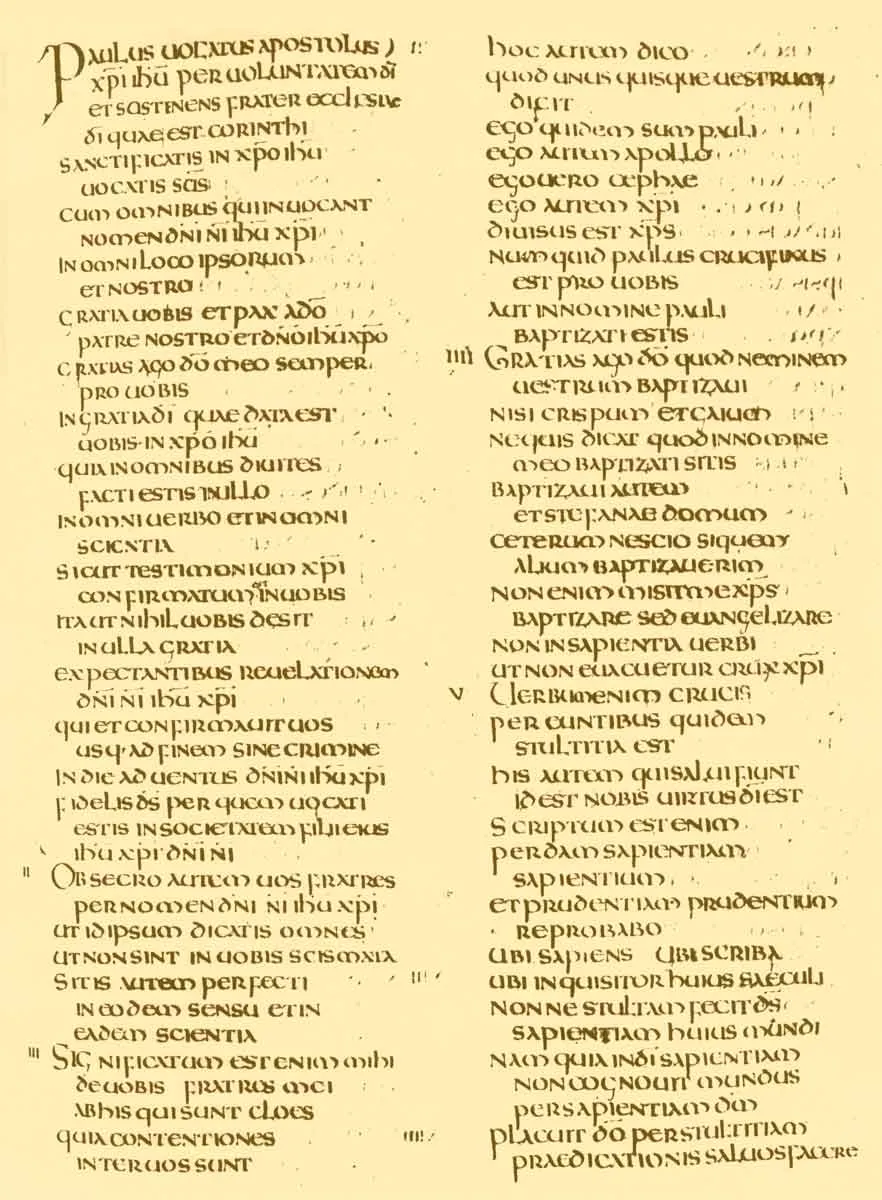 PAULUS UOCATUS APOSTOLUS
XPI IHU PER UOLUNTATEM DI
ET SOSTENENS FRATER ECCLESIAE
DI QUAE EST CORINTHI
SANCTIFICATIS IN XPO IHU
UOCATIS SCIS
CUM OMNIBUS QUI INUOCANT
NOMEN DNI NI IHU XPI
IN OMNI LOCO IPSORUM
ET NOSTRO
GRATIA UOBIS ET PAX A DO
PATRE NOSTRO ET DNO IHU XPO
GRATIAS AGO DO MEO SEMPER
PRO UOBIS
IN GRATIA DI QUAE DATA EST
UOBIS IN XPO IHU
QUIA IN OMNIBUS DIUITES
FACTI ESTIS IN ILLO
IN OMNI UERBO ET IN OMNI
SCIENTIA
SICUT TESTIMONIUM XPI
CONFIRMATUM IN UOBIS
ITA UT NIHIL UOBIS DESIT
IN ULLA GRATIA
EXPECTANTIBUS REUELATIONEM
DNI NI IHU XPI
QUI ET CONFIRMAUIT UOS
USQ· AD FINEM SINE CRIMINE
IN DIE ADUENTUS DNI NI IHU XPI
FIDELIS DS PER QUEM UOCATI
ESTIS IN SOCIETATEM FILII EIUS
IHU XPI DNI NI
II OBSECRO AUTEM UOS FRATRES
PER NOMEN DNI NI IHU XPI
UT IDIPSUM DICATIS OMNES
UT NON SINT IN UOBIS SCISMATA
SITIS AUTEM PERFECTI
IN EODEM SENSU ET IN
EADEM SCIENTIA
III SIGNIFICATUM EST ENIM MIHI
DE UOBIS FRATRES MEI
AB HIS QUI SUNT CLOES
QUIA CONTENTIONES
INTER UOS SUNT
HOC AUTEM DICO
QUOD UNUS QUISQUE UESTRUM
DICIT
EGO QUIDEM SUM PAULI
EGO AUTEM APOLLO
EGO UERO CEPHAE
EGO AUTEM XPI
DIUISUS EST XPS
NUMQUID PAULUS CRUCIFIXUS
EST PRO UOBIS
AUT IN NOMINE PAULI
BAPTIZATI ESTIS
IIII GRATIAS AGO DO QUOD NEMINEM
UESTRUM BAPTIZAUI
NISI CRISPUM ET GAIUM
NE QUIS DICAT QUOD IN NOMINE
MEO BAPTIZATI SITIS
BAPTIZAUI AUTEM
ET STEFANAE DOMUM
CETERUM NESCIO SI QUEM
ALIUM BAPTIZAUERIM
NON ENIM MISIT ME XPS
BAPTIZARE SED EUANGELIZARE
NON IN SAPIENTIA UERBI
UT NON EUACUETUR CRUX XPI
V UERBUM ENIM CRUCIS
PEREUNTIBUS QUIDEM
STULTITIA EST
HIS AUTEM QUI SALUI FIUNT
ID EST NOBIS UIRTUS DI EST
SCRIPTUM EST ENIM
PERDAM SAPIENTIAM
SAPIENTIUM
ET PRUDENTIAM PRUDENTIUM
REPROBABO
UBI SAPIENS UBI SCRIBA
UBI INQUISITOR HUIUS SAECULI
NONNE STULTAM FECIT DS
SAPIENTIAM HUIUS MUNDI
NAM QUIA IN DI SAPIENTIAM
NON COGNOUIT MUNDUS
PER SAPIENTIAM DM
PLACUIT DO PER STULTITIAM
PRAEDICATIONIS SALUOS FACERE